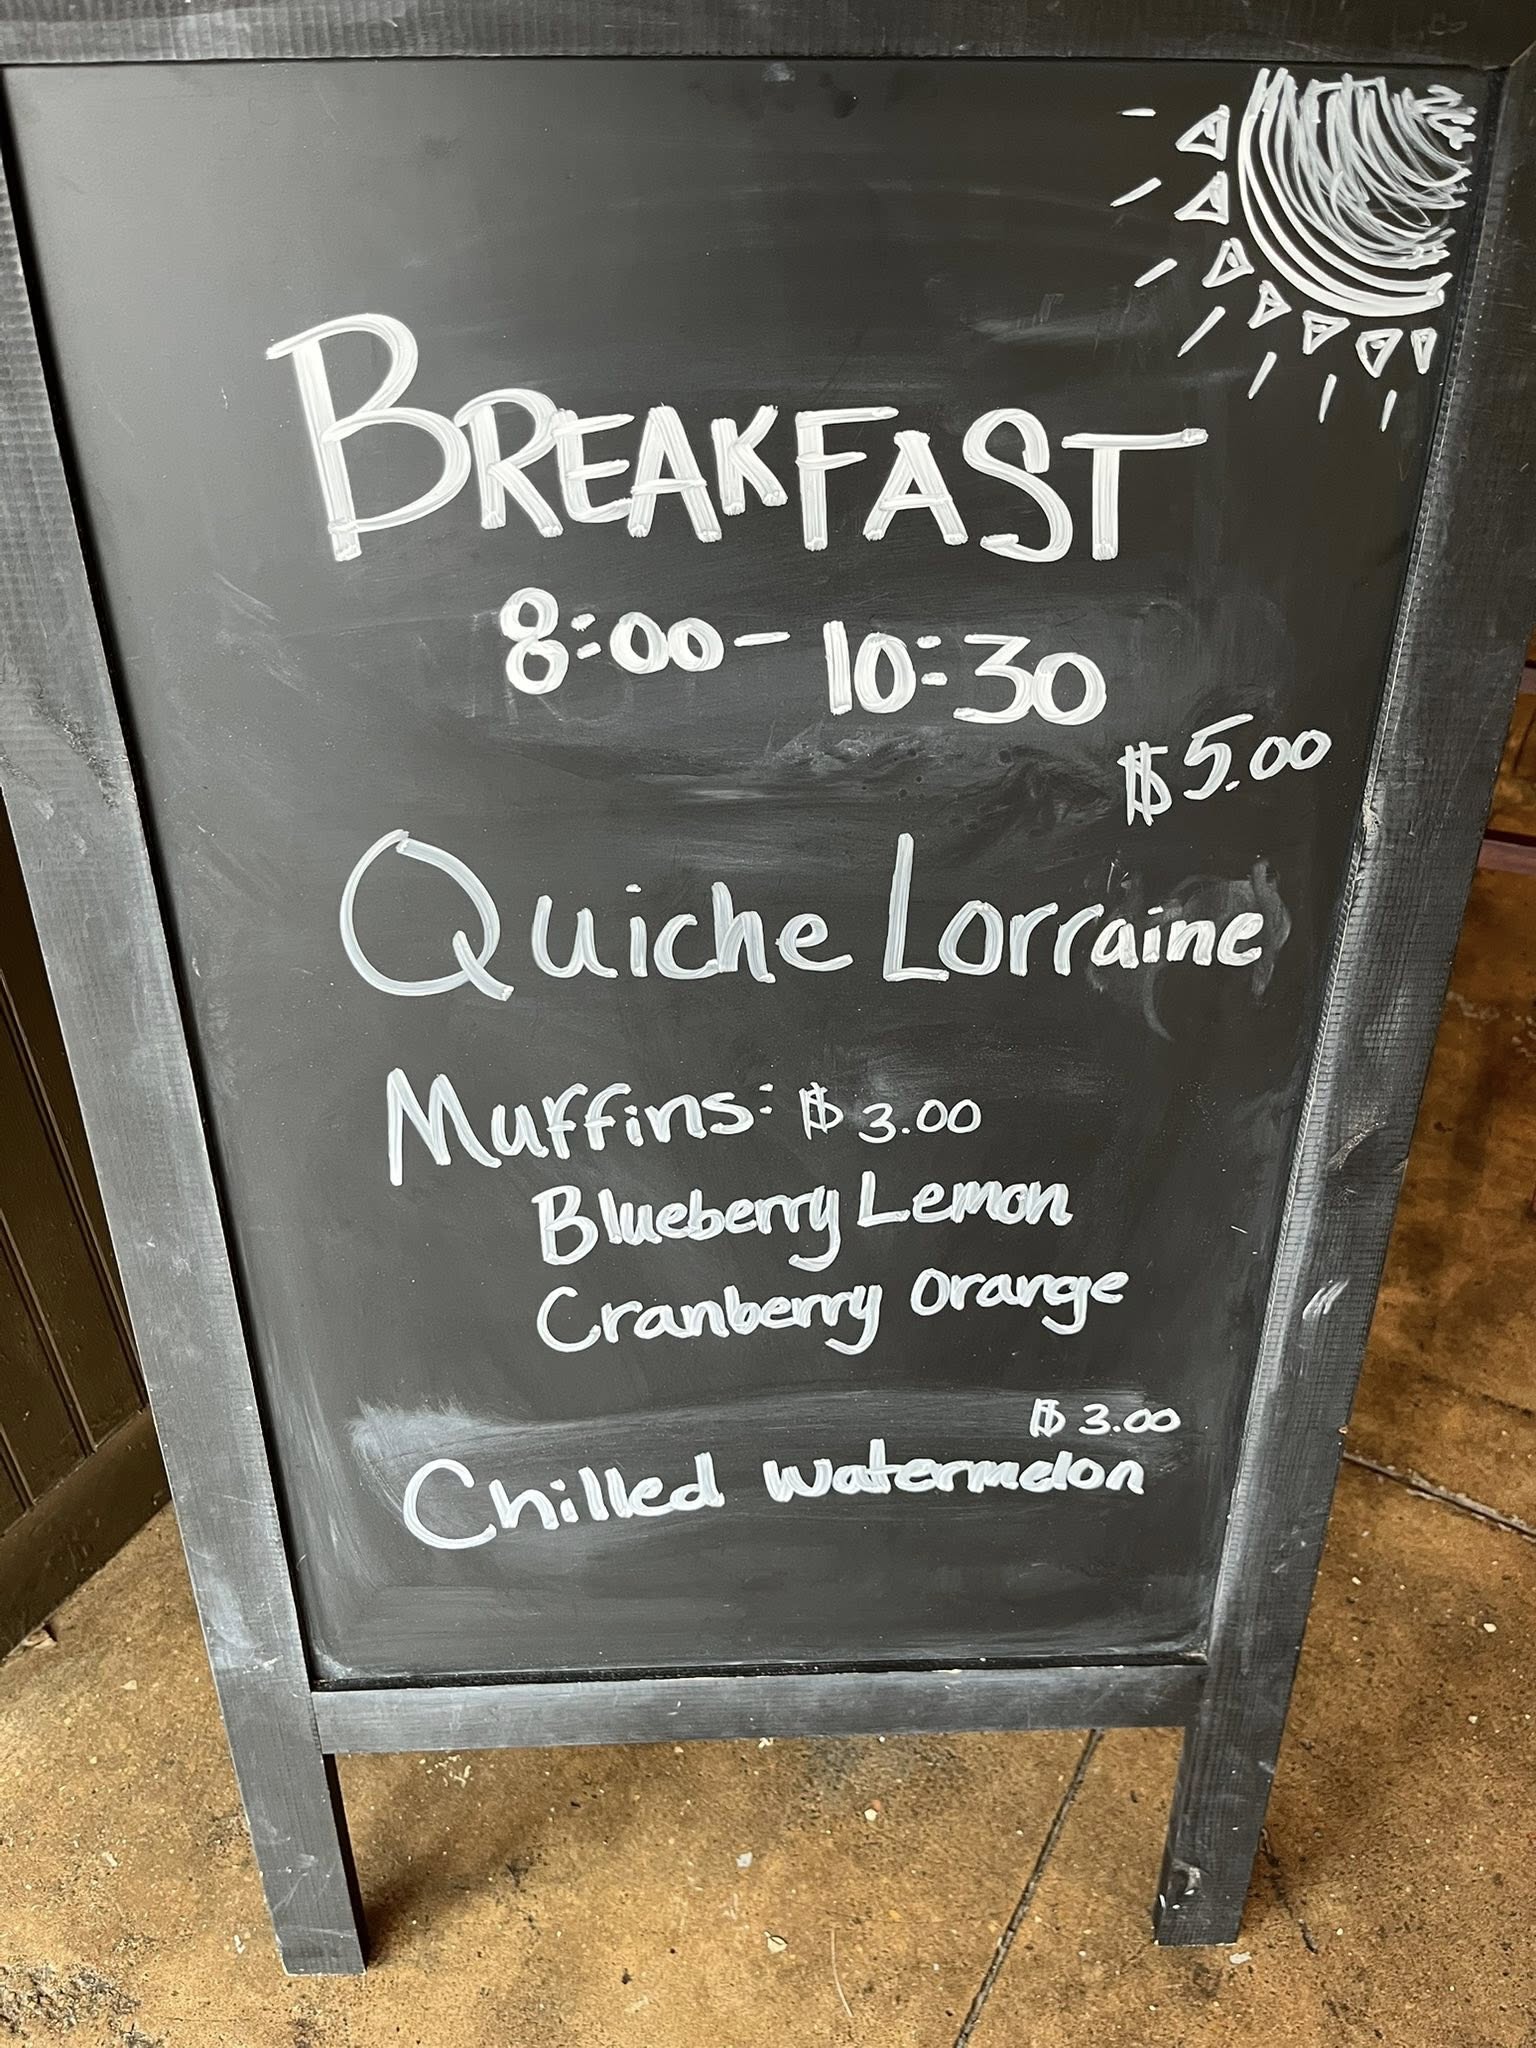 BREAKFAST
8:00 - 10:30
$5.00
Quiche Lorraine
Muffins: $3.00
Blueberry Lemon
Cranberry Orange
$3.00
Chilled watermelon